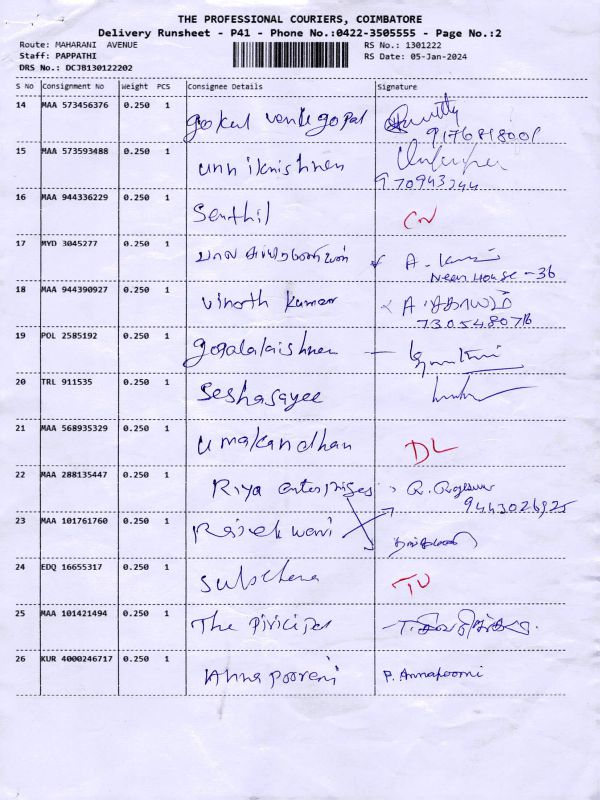 THE PROFESSIONAL COURIERS, COIMBATORE
Delivery Runsheet - P41 - Phone No.:0422-3505555 - Page No.:2
Route: MAHARANI AVENUE RS No.: 1301222
Staff: PAPPATHI RS Date: 05-Jan-2024
DRS No.: DCJB130122202
S No Consignment No Weight PCS Consignee Details Signature
14 MAA 573456376 0.250 1 gokul venugopal
9176818001
15 MAA 573593488 0.250 1 unnikrishnen
970943244
16 MAA 944336229 0.250 1 Senthil CN
17 MYD 3045277 0.250 1 A.
Near House - 36
18 MAA 944390927 0.250 1 vinoth kumar A
7305480716
19 POL 2585192 0.250 1 gopalakrishnen
20 TRL 911535 0.250 1 Seshasayee
21 MAA 568935329 0.250 1 umakandhan DL
22 MAA 288135447 0.250 1 Riya enterprises R.
9443026925
23 MAA 101761760 0.250 1
24 EDQ 16655317 0.250 1
25 MAA 101421494 0.250 1 The
26 KUR 4000246717 0.250 1 Annapoorani P. Annapoorni